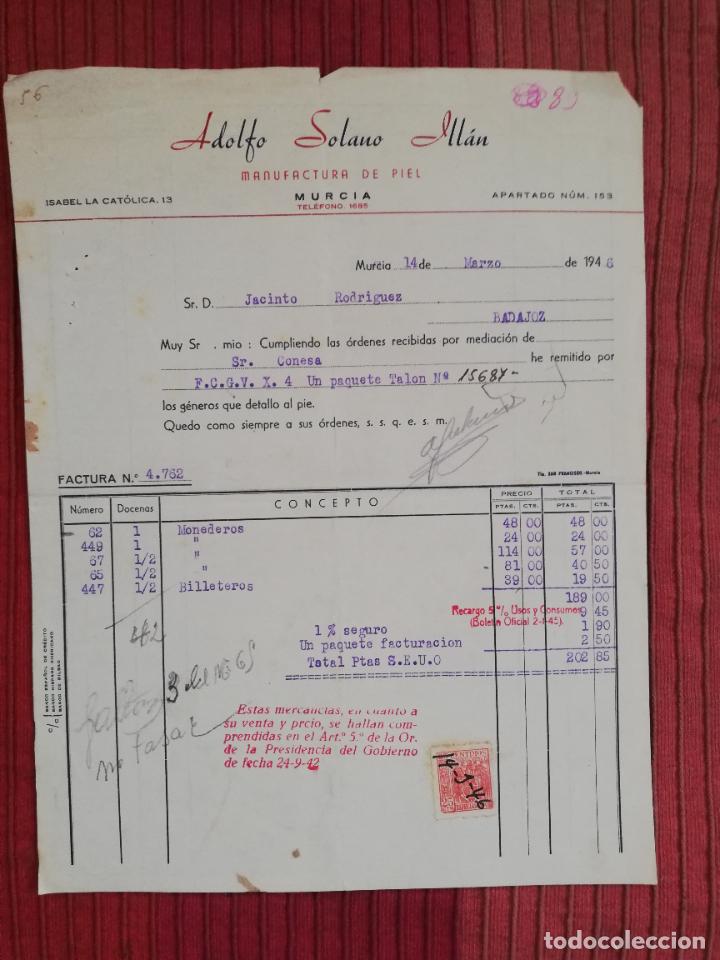 56
Adolfo Solano Illán
MANUFACTURA DE PIEL
ISABEL LA CATÓLICA, 13 MURCIA APARTADO NÚM. 153
TELÉFONO, 1685
Murcia 14 de Marzo de 1946
Sr. D. Jacinto Rodriguez
BADAJOZ
Muy Sr. mio: Cumpliendo las órdenes recibidas por mediación de
Sr. Conesa he remitido por
F.C.G.V. X. 4 Un paquete Talon Nº 15687-
los géneros que detallo al pie.
Quedo como siempre a sus órdenes, s. s. q. e. s. m.
FACTURA N.º 4.762
Tip. SAN FRANCISCO.-Murcia
Número Docenas CONCEPTO PRECIO TOTAL
PTAS. CTS. PTAS. CTS.
62 1 Monederos 48 00 48 00
449 1 " 24 00 24 00
67 1/2 " 114 00 57 00
65 1/2 " 81 00 40 50
447 1/2 Billeteros 39 00 19 50
189 00
Recargo 5 % Usos y Consumos 9 45
(Boletín Oficial 2-1-45).
1 % seguro 1 90
Un paquete facturacion 2 50
Total Ptas S.E.U.O 202 85
C/C BANCO ESPAÑOL DE CRÉDITO
BANCO HISPANO AMERICANO
BANCO DE BILBAO
Estas mercancías, en cuanto a
su venta y prcio, se hallan com-
prendidas en el Art.º 5.º de la Or.
de la Presidencia del Gobierno
de fecha 24-9-42
14-3-46
todocoleccion.net